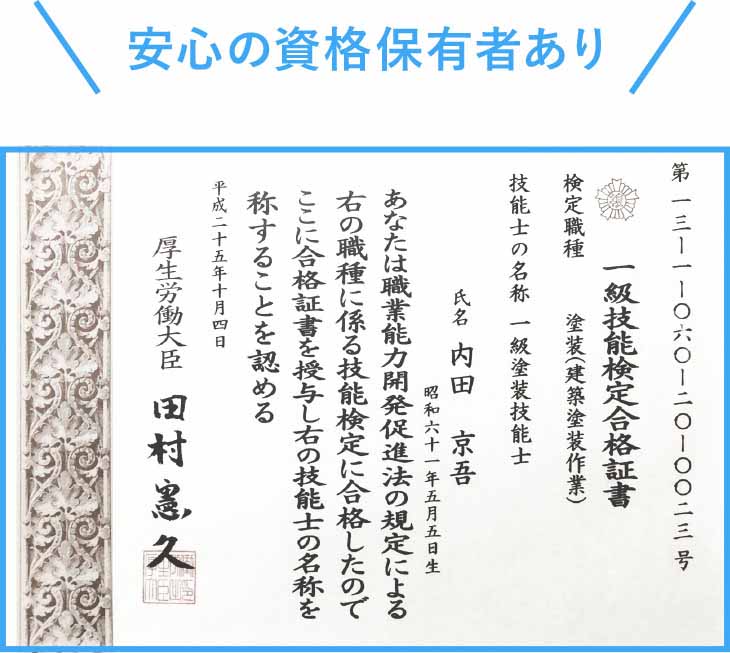 安心の資格保有者あり
第一三ー一ー〇六〇ー二〇ー〇〇二三号
一級技能検定合格証書
検定職種 塗装(建築塗装作業)
技能士の名称 一級塗装技能士
氏名 内田 京吾
昭和六十一年五月五日生
あなたは職業能力開発促進法の規定による
右の職種に係る技能検定に合格したので
ここに合格証書を授与し右の技能士の名称を
称することを認める
平成二十五年十月四日
厚生労働大臣 田村憲久